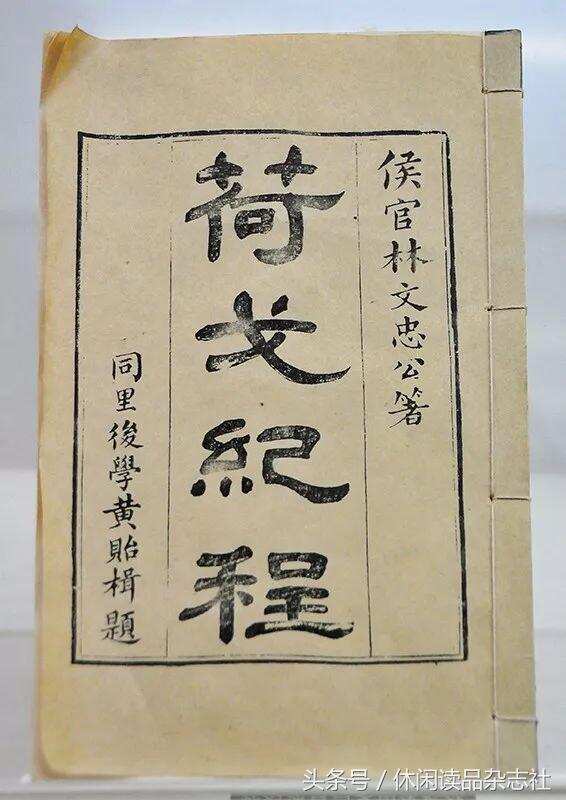 侯官林文忠公箸
荷戈紀程
同里後學黄貽楫題
头条号/休闲读品杂志社